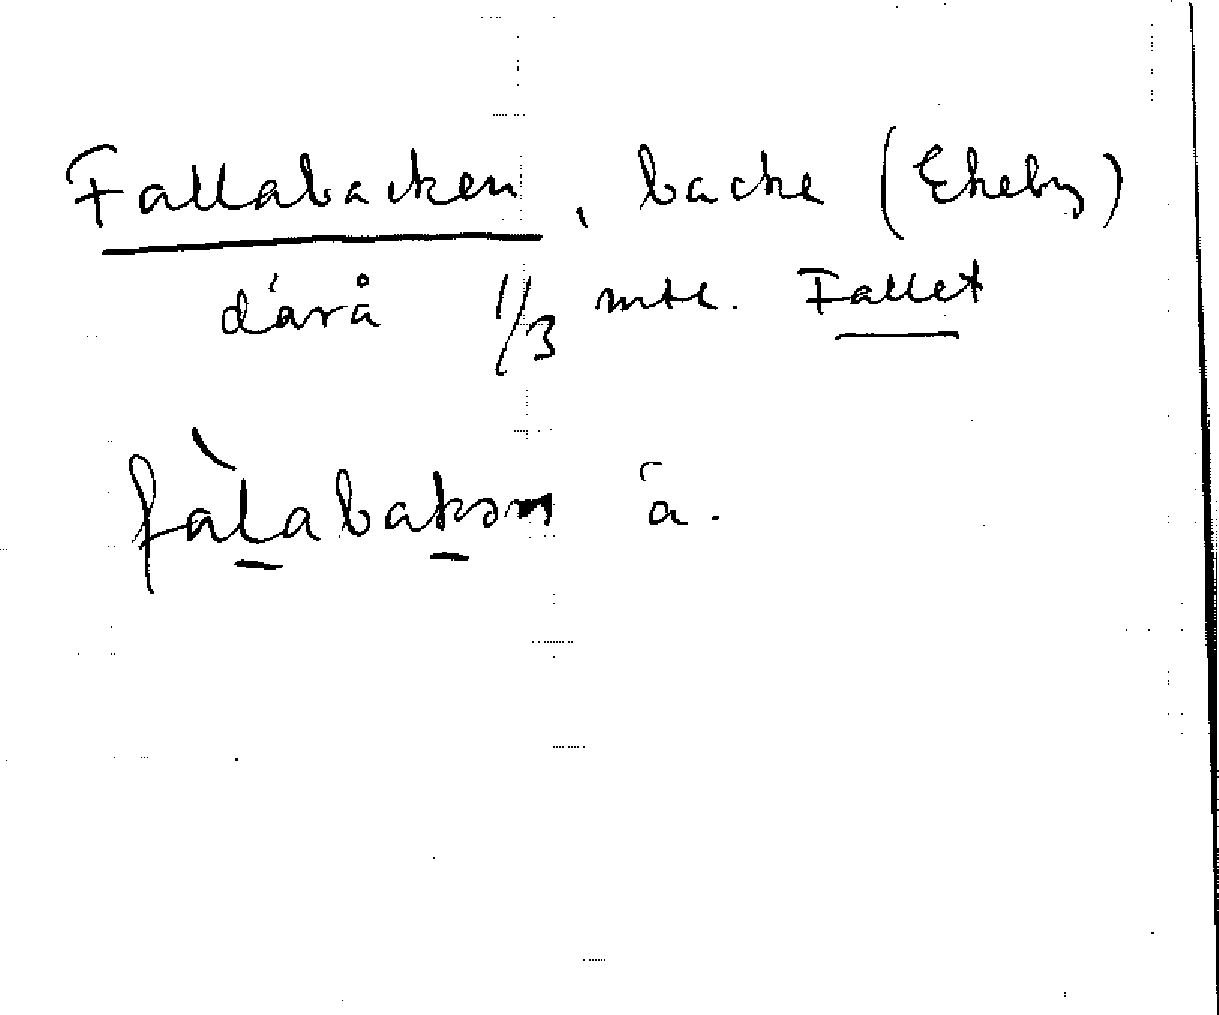 Fallabacken, backe (Ekeby)
därå 1/3 mtl. Fallet
fàlabakən ä.